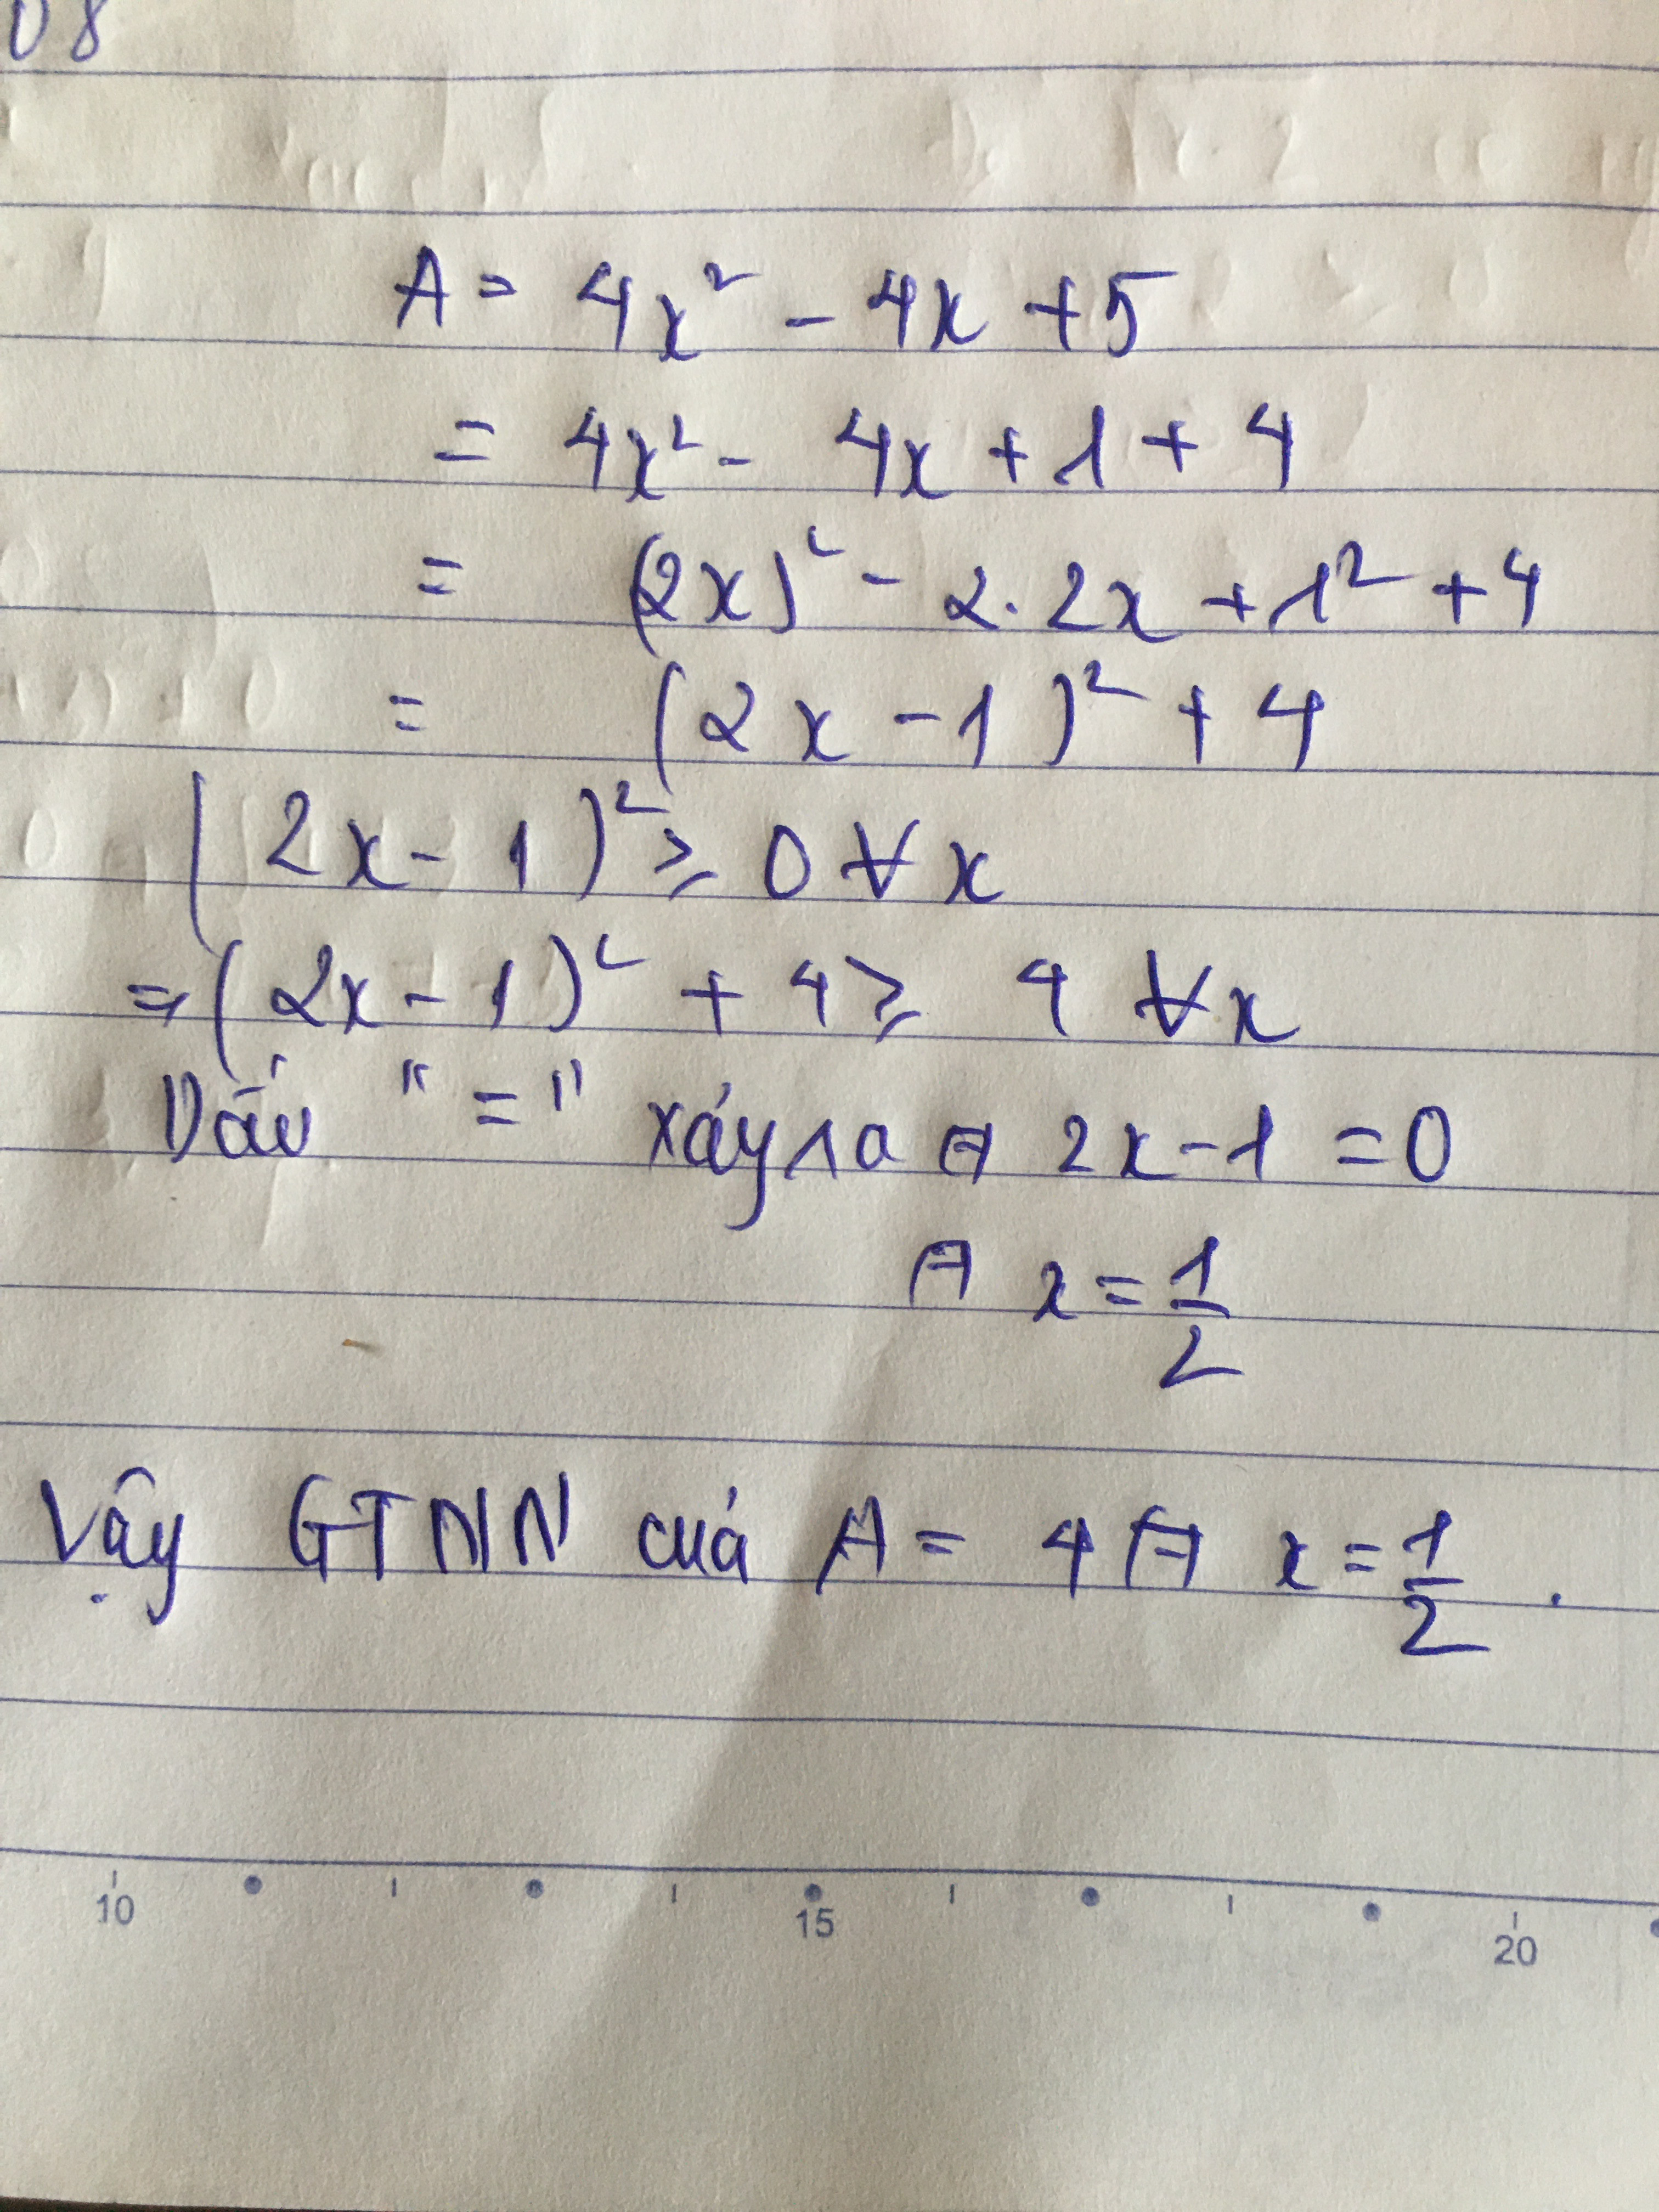 08
A = 4x² - 4x + 5
= 4x² - 4x + 1 + 4
= (2x)² - 2.2x + 1² + 4
= (2x - 1)² + 4
(2x - 1)² ≥ 0 ∀x
⇒ (2x - 1)² + 4 ≥ 4 ∀x
Dấu "=" xảy ra ⇔ 2x - 1 = 0
⇔ x = 1/2
Vậy GTNN của A = 4 ⇔ x = 1/2.
10 15 20